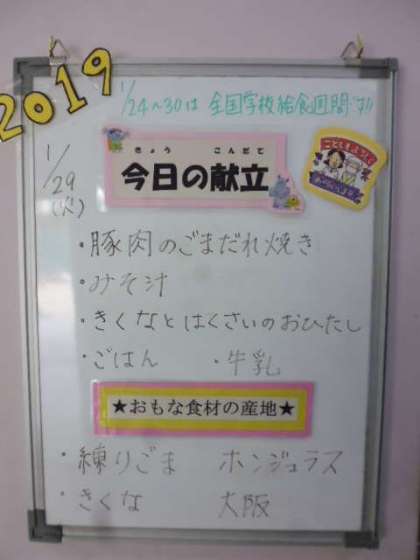 2019
1/24~30は 全国学校給食週間です!!
きょう こんだて
今日の献立
ことしもよろしく
おねがいします
1/29
(火)
・豚肉のごまだれ焼き
・みそ汁
・きくなとはくさいのおひたし
・ごはん ・牛乳
★おもな食材の産地★
・練りごま ホンジュラス
・きくな 大阪